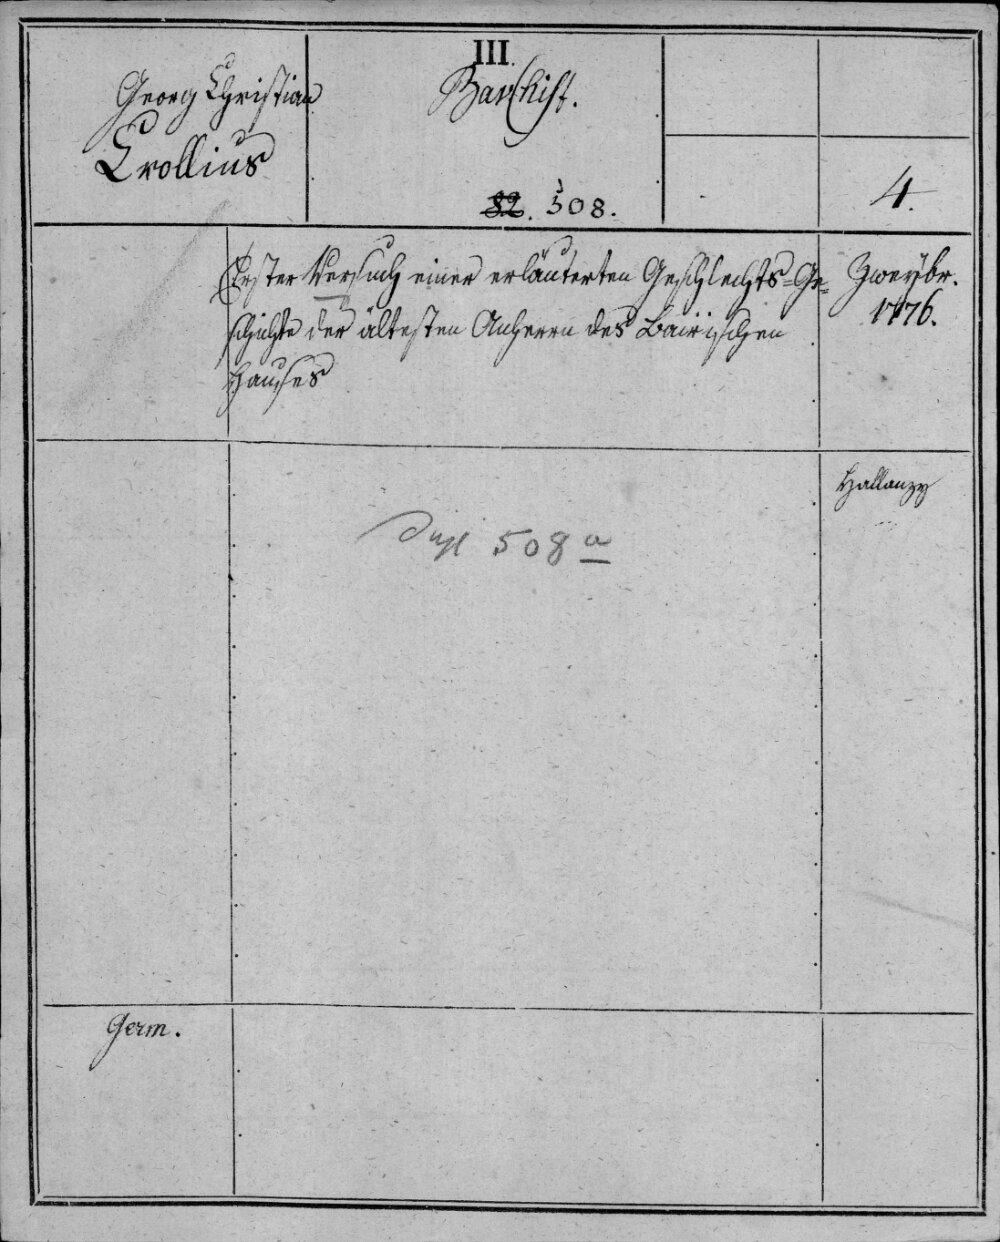 III.
Georg Christian
Crollius
Bav. hist.
82. 508.
4.
Erster Versuch einer erläuterten Geschlechts-Ge-
schichte der ältesten Anherrn des Bairischen
Hauses
Zweÿbr.
1776.
Hallanzy
Dupl 508 a
Germ.